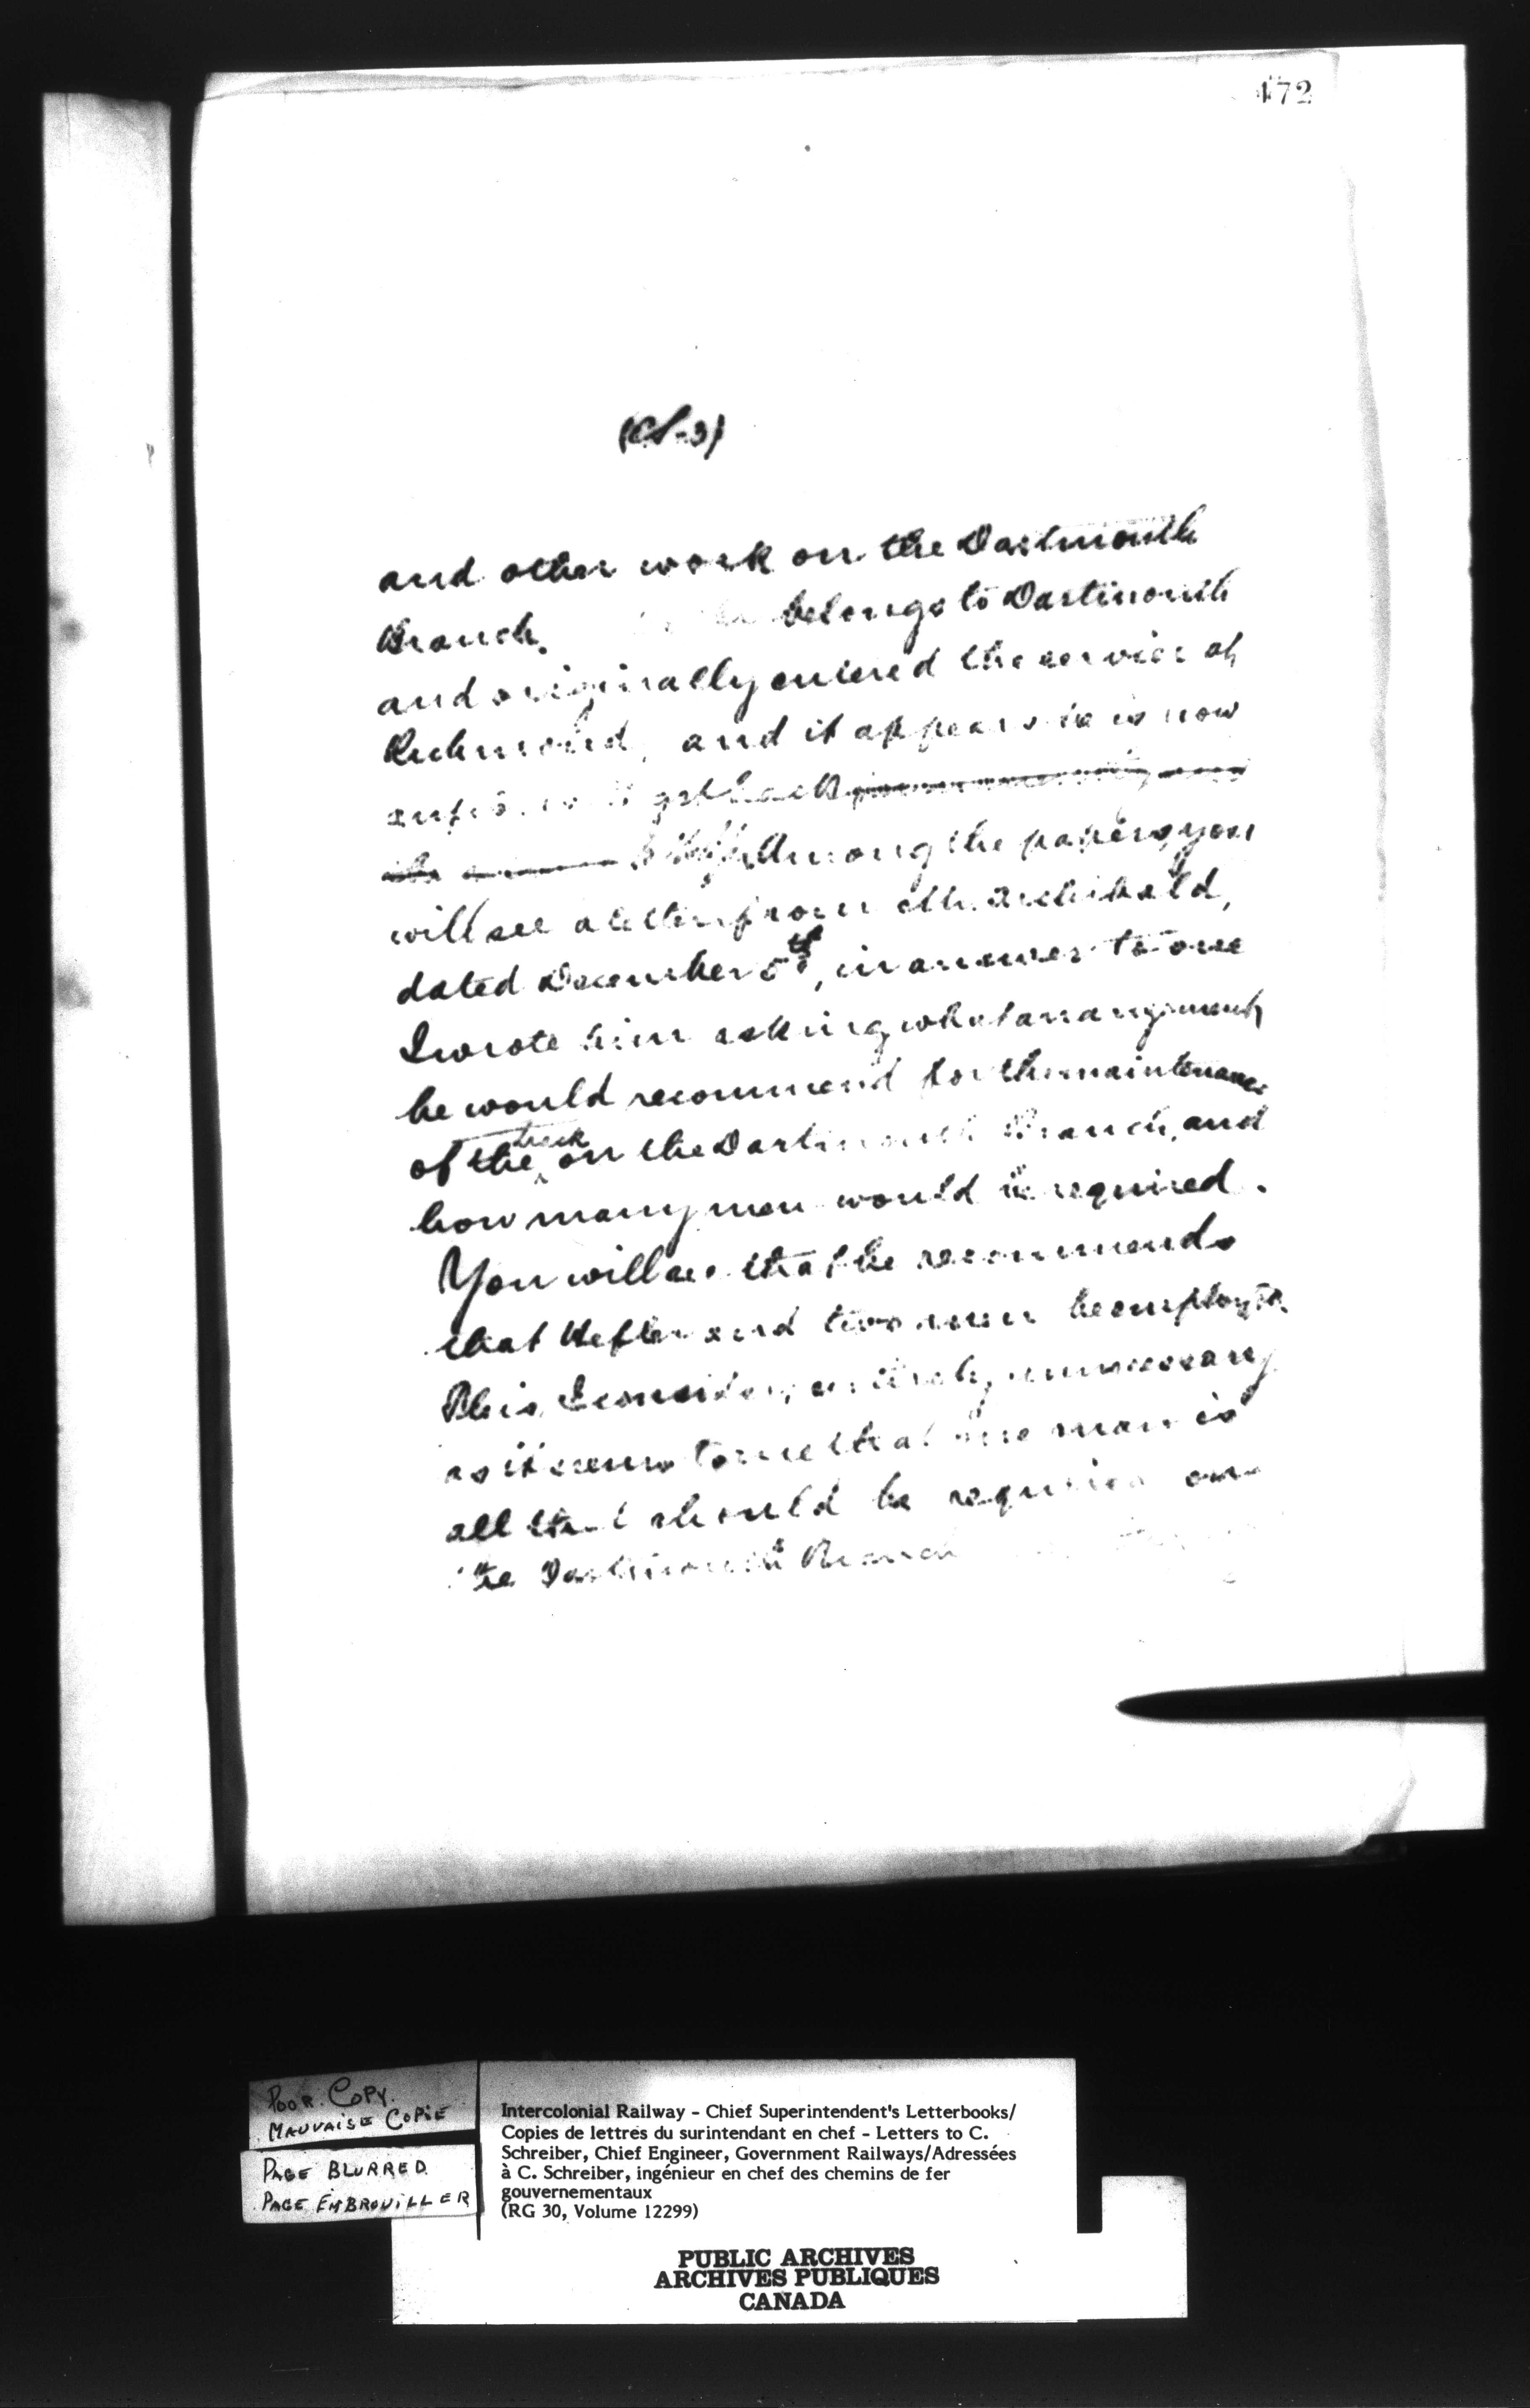 472
and other work on the Dartmouth
Branch. belongs to Dartmouth
and originally entered the service at
Richmond, and it appears he is now
get back
Among the papers, you
will see a letter from Mr. Archibald,
dated December 5th, in answer to one
I wrote him asking what arrangement
he would recommend for the maintenance
of the track on the Dartmouth Branch, and
how many men would be required.
You will see that he recommends
that and two men be employed.
This, I consider, entirely unnecessary
as it seems to me that one man is
all that should be required on
the Dartmouth Branch
POOR COPY.
MAUVAISE COPIE
PAGE BLURRED
PAGE EMBROUILLER
Intercolonial Railway - Chief Superintendent's Letterbooks/
Copies de lettres du surintendant en chef - Letters to C.
Schreiber, Chief Engineer, Government Railways/Adressées
à C. Schreiber, ingénieur en chef des chemins de fer
gouvernementaux
(RG 30, Volume 12299)
PUBLIC ARCHIVES
ARCHIVES PUBLIQUES
CANADA